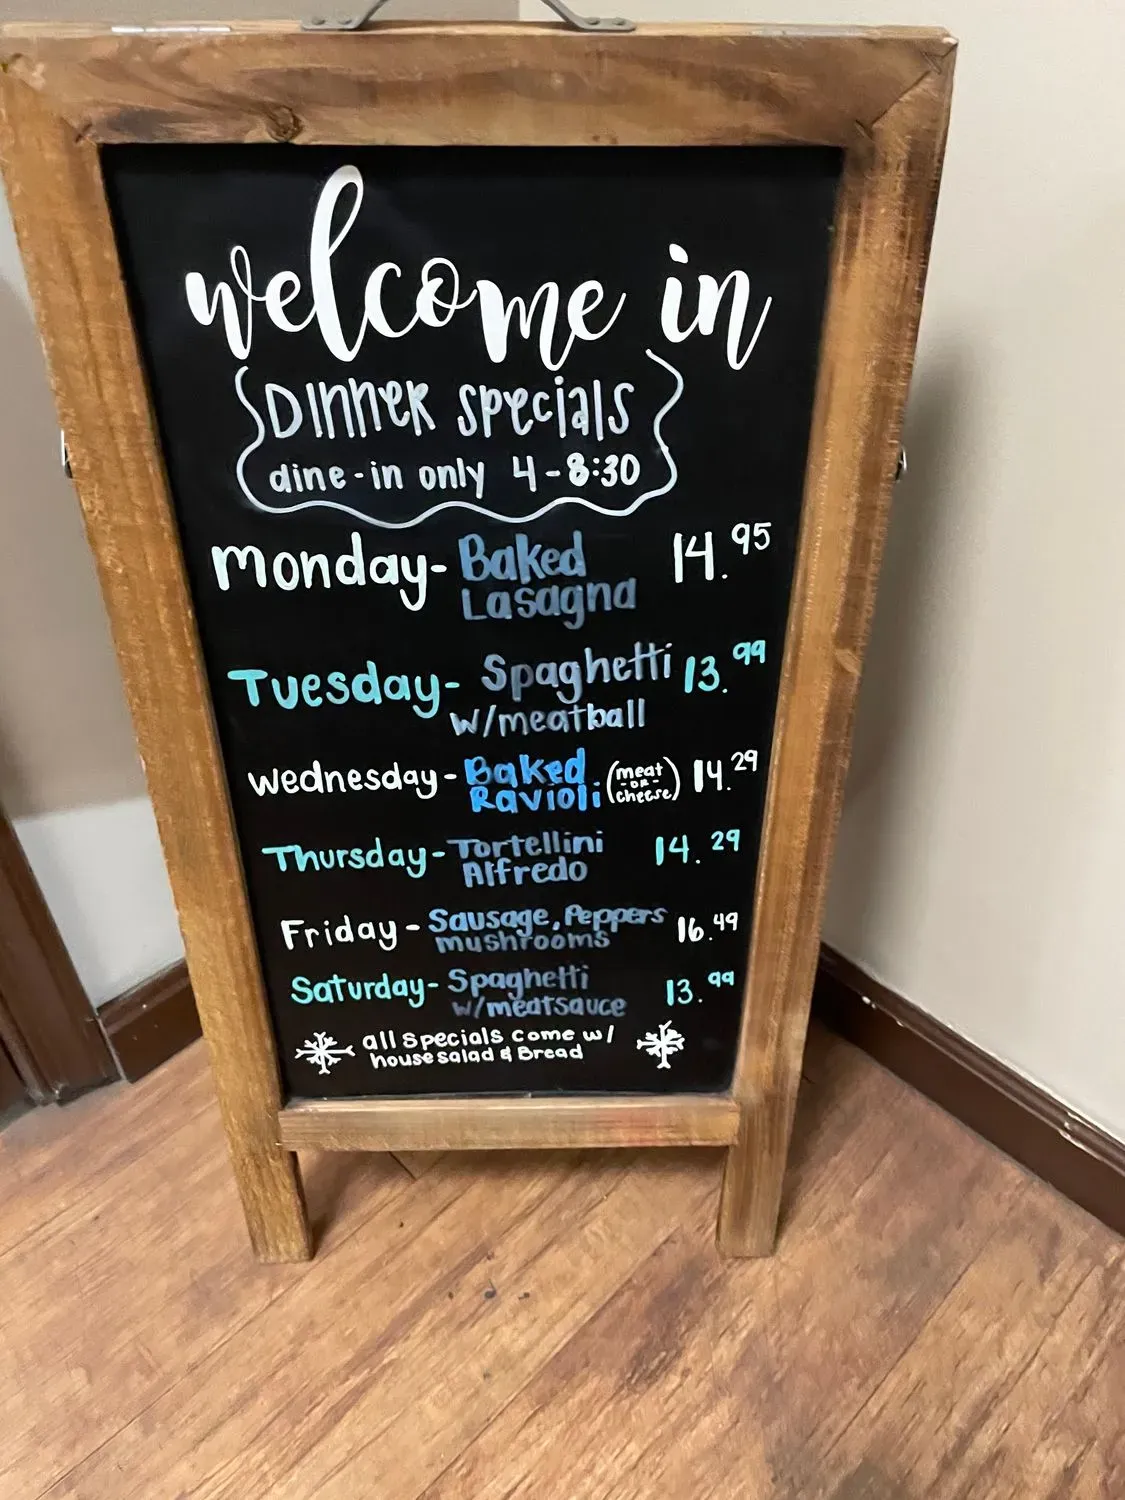 welcome in
DINNER specials
dine-in only 4-8:30
Monday- Baked 14.95
Lasagna
Tuesday- Spaghetti 13.99
w/meatball
Wednesday- Baked (meat 14.29
-OR-
Ravioli cheese)
Thursday- Tortellini 14.29
Alfredo
Friday- Sausage, Peppers 16.49
mushrooms
Saturday- Spaghetti 13.99
w/meatsauce
all specials come w/
house salad & Bread